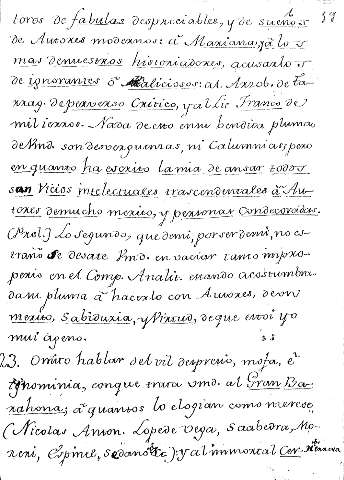 57
tores de fabulas despreciables, y de sueños
de Autores modernos: á Mariana, y á los
mas de nuestros historiadores, acusarlos
de ignorantes ó maliciosos: al Arzob. de Ta-
rrag. de perverso Critico, y al Lic. Franco de
mil ierros. Nada de esto en su bendita pluma
de Vmd. son desverguenzas, ni Calumnias; pero
en quanto ha escrito la mia de ansar todos
son Vicios intelectuales trascendentales á Au-
tores de mucho merito, y personas Condecoradas.
(Prol.) Lo Segundo, que de mi, por ser de mi, no es-
traño se desate Vmd. en vaciar tanto impro-
perio en el Comp. Analit. cuando acostumbra
da su pluma á hacerlo con Autores, de un
merito, Sabiduria, y Virtud, de que estoi yo
mui ageno.
23. Omito hablar del vil desprecio, mofa, é
ignominia, con que trata vmd. al Gran Ba-
rahona; á quantos lo elogian como merece
(Nicolas Anton. Lope de Vega, Saabedra, Mo-
reri, Espinel, Sedano &c.): y al immortal Cer. Herrera